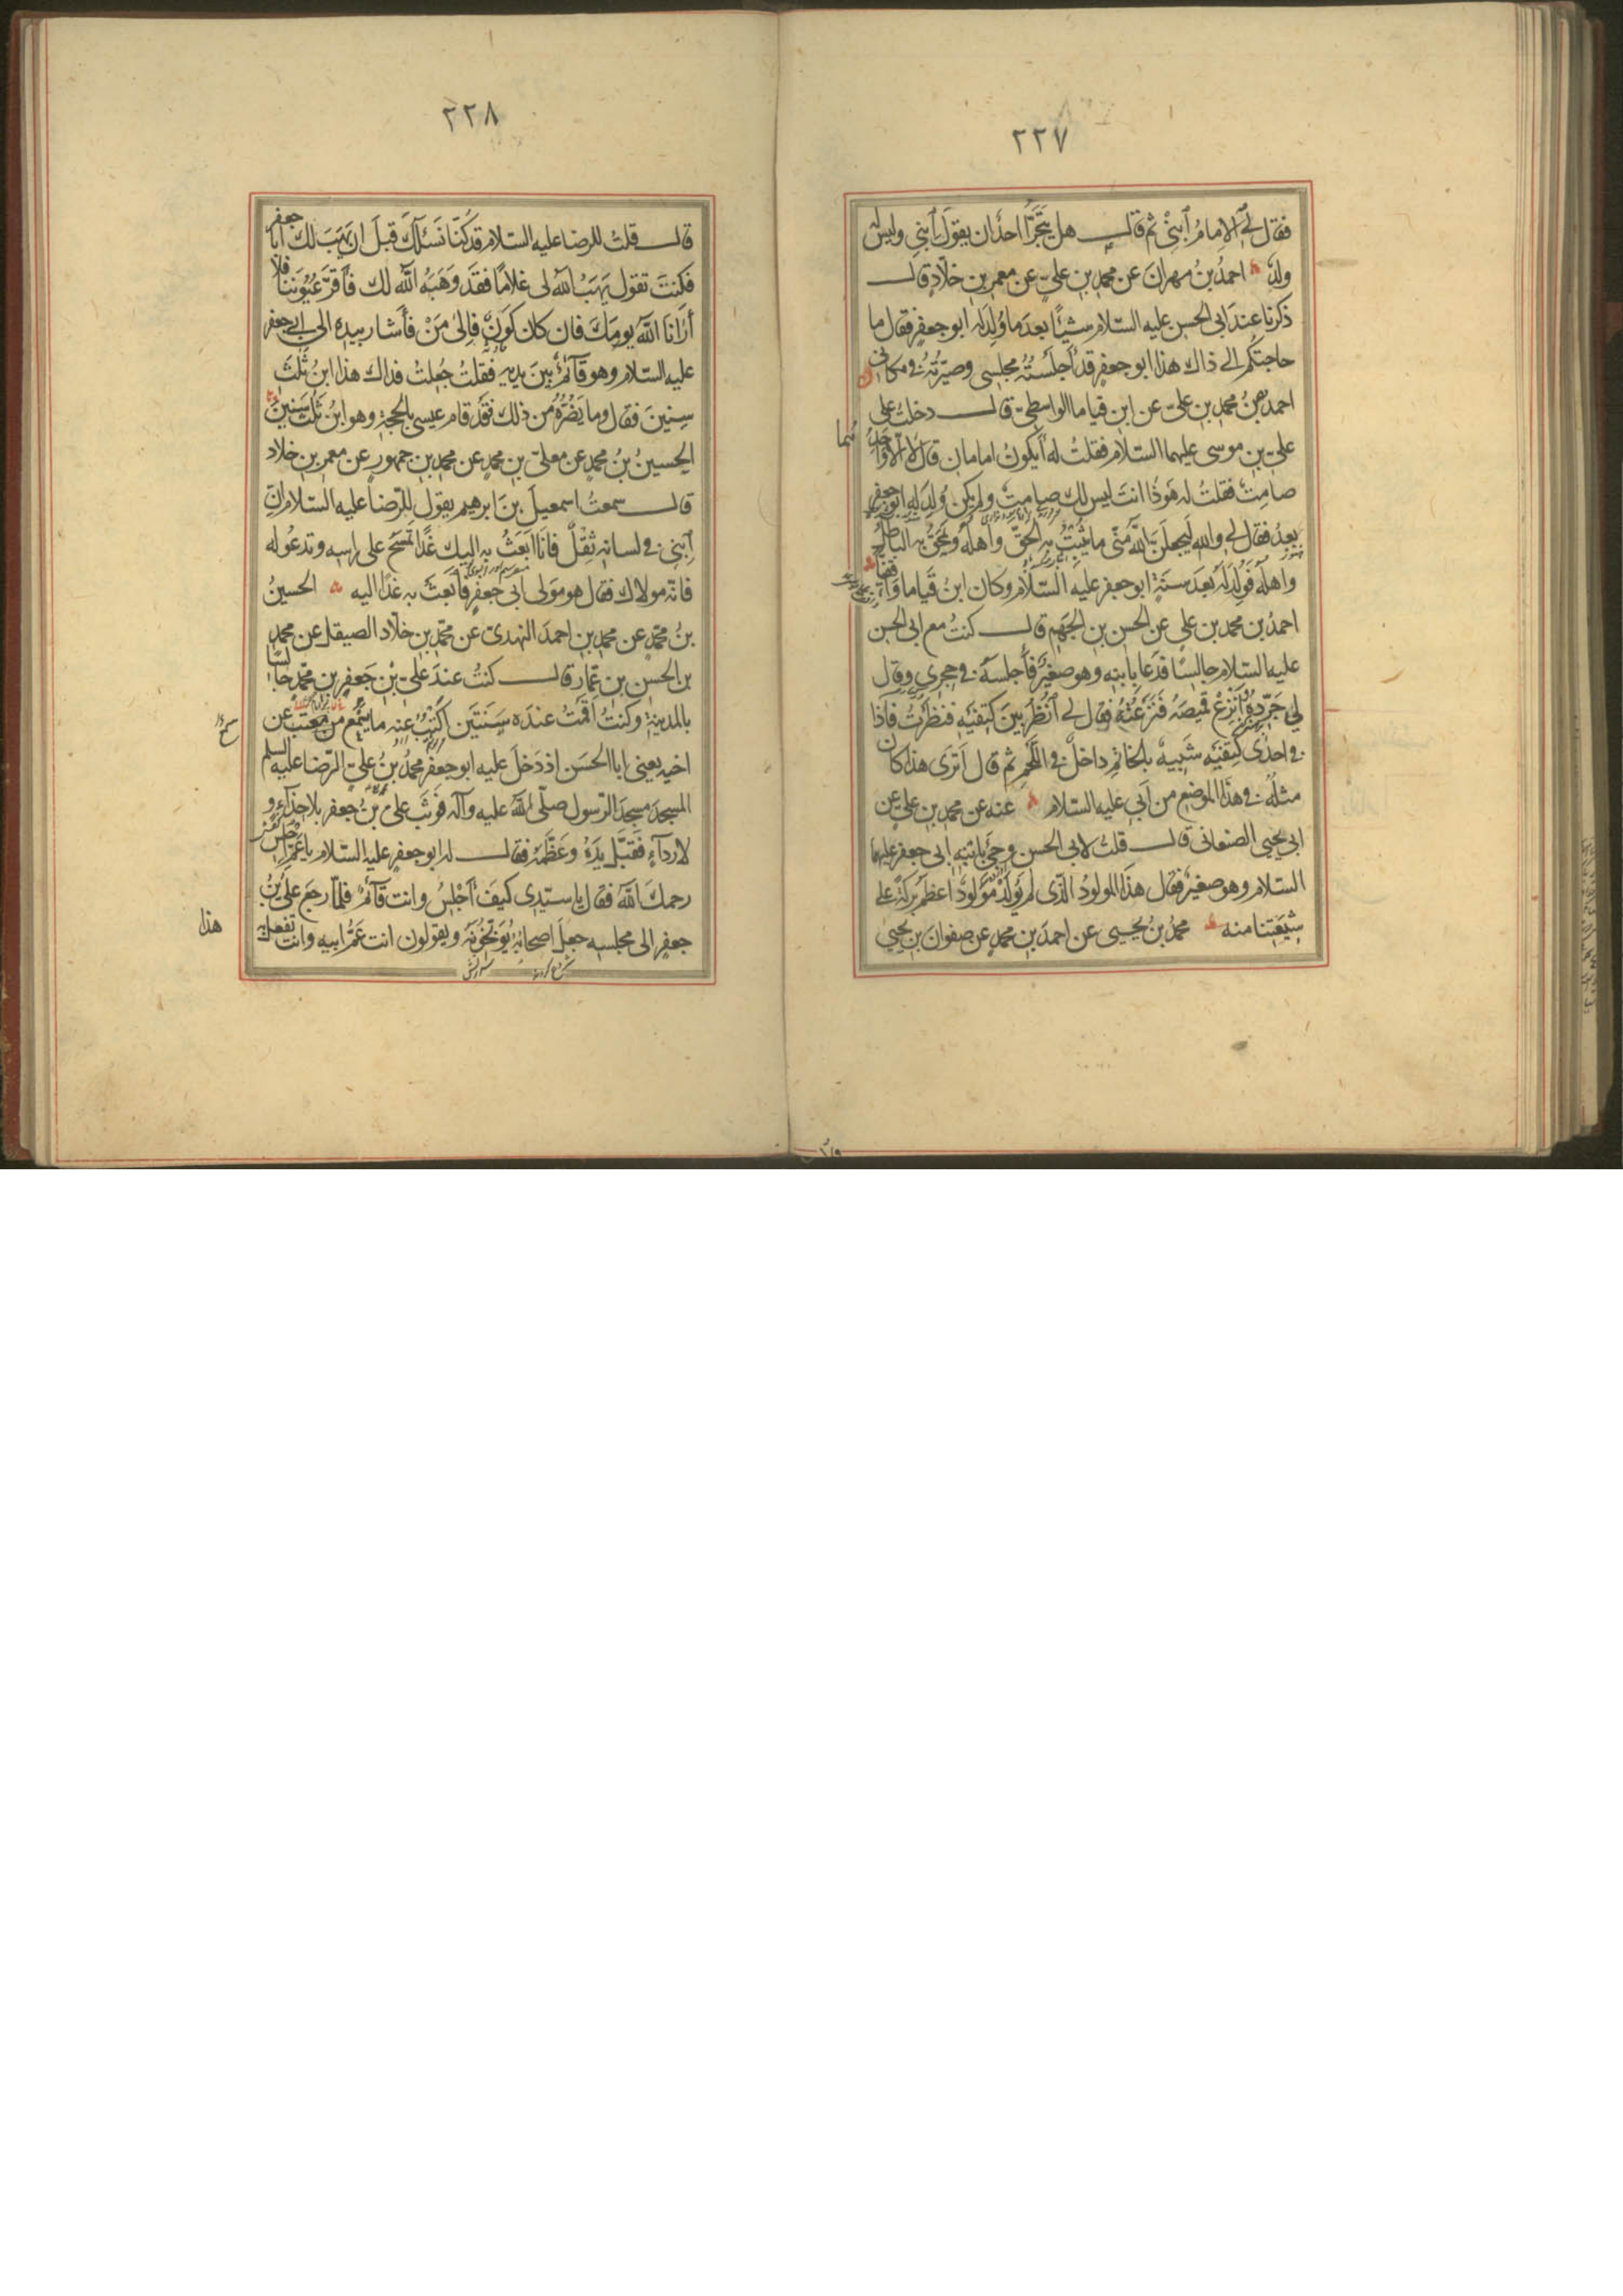 ٢٢٧
فقال لى الامامُ اِبنى ثم قال هل يَتَجَرَّأ احدٌ ان يقولَ اِبنى وليس له
ولدٌ احمدُ بنُ مهرانَ عن محمدِ بنِ علىٍّ عن معمرِ بنِ خلّادٍ قال
ذكرنا عندَ ابى الحسنِ عليه السّلام شيئًا بعدَ ما وُلِدَ له ابو جعفرٍ فقال ما
حاجتكُم الى ذاك هذا ابو جعفرٍ قد اَجلَستُهُ مجلسى وصيّرتُهُ فى مكانى
احمدُ عن محمدِ بنِ علىّ عن ابنِ قياما الواسطىّ قال دخلتُ على
علىِّ بنِ موسى عليهما السّلام فقلتُ له اَيكونُ امامان قال لا الّا واَحَدُهُما
صامِتٌ فقلتُ له هوَ ذا انتَ ليس لك صامِتٌ ولم يكن وُلِدَ له ابو جعفرٍ
بعدُ فقال لى واللهِ لَيجعلَنَّ اللهُ مِنّى ما يُثبِتُ به الحقَّ واهلَهُ ويَمحَقُ به الباطلَ
واهلَه فوُلِدَ له بعدَ سنةٍ ابو جعفرٍ عليه السّلام وكان ابنُ قياما واقفيّاً
احمدُ بن محمدِ بن علىٍ عن الحسنِ بنِ الجَهمِ قال كنتُ مع ابى الحسن
عليه السّلام جالسًا فدَعا بابنِه وهو صغيرٌ فأَجلَسَهُ فى حِجرى وقال
لى جَرِّدهُ واَنزِع قميصَهُ فنَزَعتُهُ فقال لى اُنظُر بينَ كتِفَيهِ فنظَرتُ فاذا
فى احدى كتِفَيه شبيهٌ بالخاتِمِ داخلٌ فى اللَّحمِ ثم قال اَترى هذا كان
مثلُهُ فى هذا الموضعِ من اَبى عليه السّلام عنه عن محمدِ بنِ علىٍ عن
ابى يحيى الصنعانى قال قلتُ لابى الحسنِ وجِىَ بابنِه ابى جعفرٍ عليهما
السّلام وهو صغيرٌ فقال هذا المولودُ الّذى لم يُولَد مَولودٌ اعظَمُ بركةً على
شيعَتِنا منه محمدُ بنُ يحيى عن احمدَ بنِ محمدٍ عن صفوانَ بن يحيى
٢٢٨
قال قلتُ للرضا عليه السّلام قد كُنّا نَسئلُكَ قبلَ ان يَهَبَ لك ابا جعفر
فكنتَ تقول يَهَبُ اللهُ لى غلامًا فقد وَهَبَهُ اللهُ لك فأَقرَّ عيُونَنا فلا
أَرانا اللهُ يومَكَ فان كان كَونٌ فاِلىٰ مَنْ فأَشار بيدِه الى ابى جعفر
عليه السّلام وهو قائمٌ بينَ يديه فقلتُ جُعِلتُ فداك هذا ابنُ ثلثَ
سنينَ فقال وما يَضُرُّهُ من ذلك فقَد قام عيسى بالحجةِ وهو ابنُ ثلثَ سنينَ
الحسينُ بنُ محمدٍ عن معلّى بنِ محمدٍ عن محمدِ بنِ جمهورٍ عن معمرِ بنِ خلاد
قال سمعتُ اسمعيلَ بنَ ابرهيم يقول للرّضا عليه السّلام انّ
اِبنى فى لسانِه ثِقلٌ فانَا اَبعَثُ به اليك غَدًا تمسَحُ على راسِه وتدعُو له
فانّه مولاك فقال هو مَولى ابى جعفرٍ فأبعَث به غدًا اليه الحسينُ
بنُ محمّدٍ عن محمدِ بنِ احمدَ النهدىّ عن محمّدِ بنِ خلّاد الصيقلِ عن محمدِ
بن الحسنِ بن عمّارٍ قال كنتُ عندَ علىِّ بْنِ جَعفَرِ بنِ محمّدٍ جالسًا
بالمدينةِ وكنتُ اقمتُ عندَه سنَتَين اَكتُبُ عنه ما يسمَعُ من عن
اخيه يعنى ابا الحسَن اذ دَخلَ عليه ابو جعفرٍ محمدُ بنُ علىٍّ الرّضا عليه السلم
المسجدَ مسجدَ الرّسول صلّى اللهُ عليه وآله فوَثَبَ علىُّ بنُ جعفر بلا حِذآءٍ و
لا ردآءٍ فقَبَّلَ يَدَهُ وعَظَّمَهُ فقال له ابو جعفرٍ عليه السّلام يا عَمِّ اجلِس
رحمكَ اللهُ فقال يا سيّدى كيفَ اَجلِسُ وانت قآئمٌ فلمّا رجَع علىُّ بنُ
جعفرٍ الى مجلسِه جعلَ اصحابُهُ يُوَبّخُونَهُ ويقولون انت عَمُّ ابيه وانت تفعلُ به
هذا